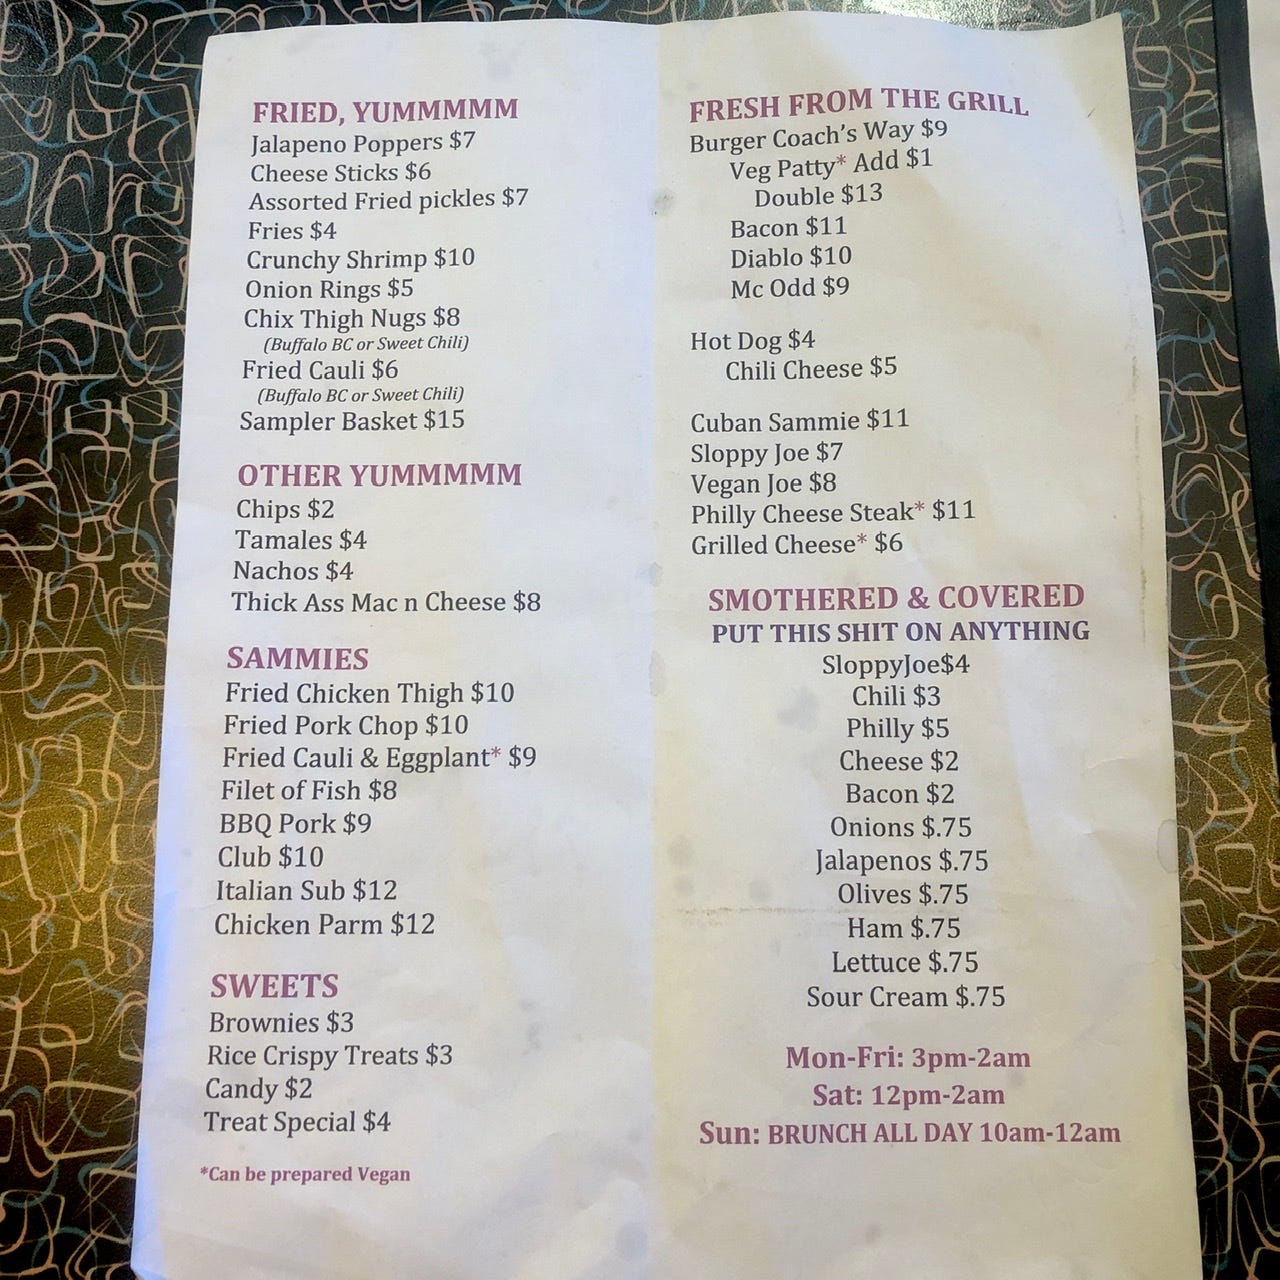 FRIED, YUMMMMM
Jalapeno Poppers $7
Cheese Sticks $6
Assorted Fried pickles $7
Fries $4
Crunchy Shrimp $10
Onion Rings $5
Chix Thigh Nugs $8
(Buffalo BC or Sweet Chili)
Fried Cauli $6
(Buffalo BC or Sweet Chili)
Sampler Basket $15
OTHER YUMMMMM
Chips $2
Tamales $4
Nachos $4
Thick Ass Mac n Cheese $8
SAMMIES
Fried Chicken Thigh $10
Fried Pork Chop $10
Fried Cauli & Eggplant* $9
Filet of Fish $8
BBQ Pork $9
Club $10
Italian Sub $12
Chicken Parm $12
SWEETS
Brownies $3
Rice Crispy Treats $3
Candy $2
Treat Special $4
*Can be prepared Vegan
FRESH FROM THE GRILL
Burger Coach's Way $9
Veg Patty* Add $1
Double $13
Bacon $11
Diablo $10
Mc Odd $9
Hot Dog $4
Chili Cheese $5
Cuban Sammie $11
Sloppy Joe $7
Vegan Joe $8
Philly Cheese Steak* $11
Grilled Cheese* $6
SMOTHERED & COVERED
PUT THIS SHIT ON ANYTHING
SloppyJoe$4
Chili $3
Philly $5
Cheese $2
Bacon $2
Onions $.75
Jalapenos $.75
Olives $.75
Ham $.75
Lettuce $.75
Sour Cream $.75
Mon-Fri: 3pm-2am
Sat: 12pm-2am
Sun: BRUNCH ALL DAY 10am-12am